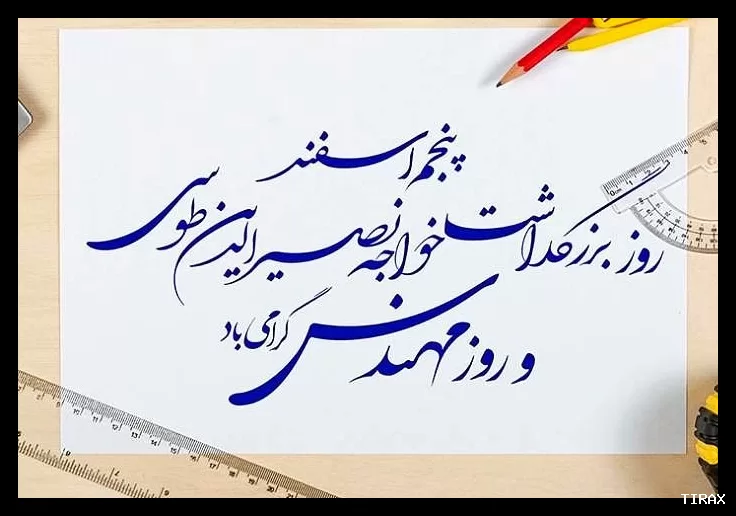 پنجم اسفند
روز بزرگداشت خواجه نصیرالدین طوسی
و روز مهندس گرامی باد
TIRAX